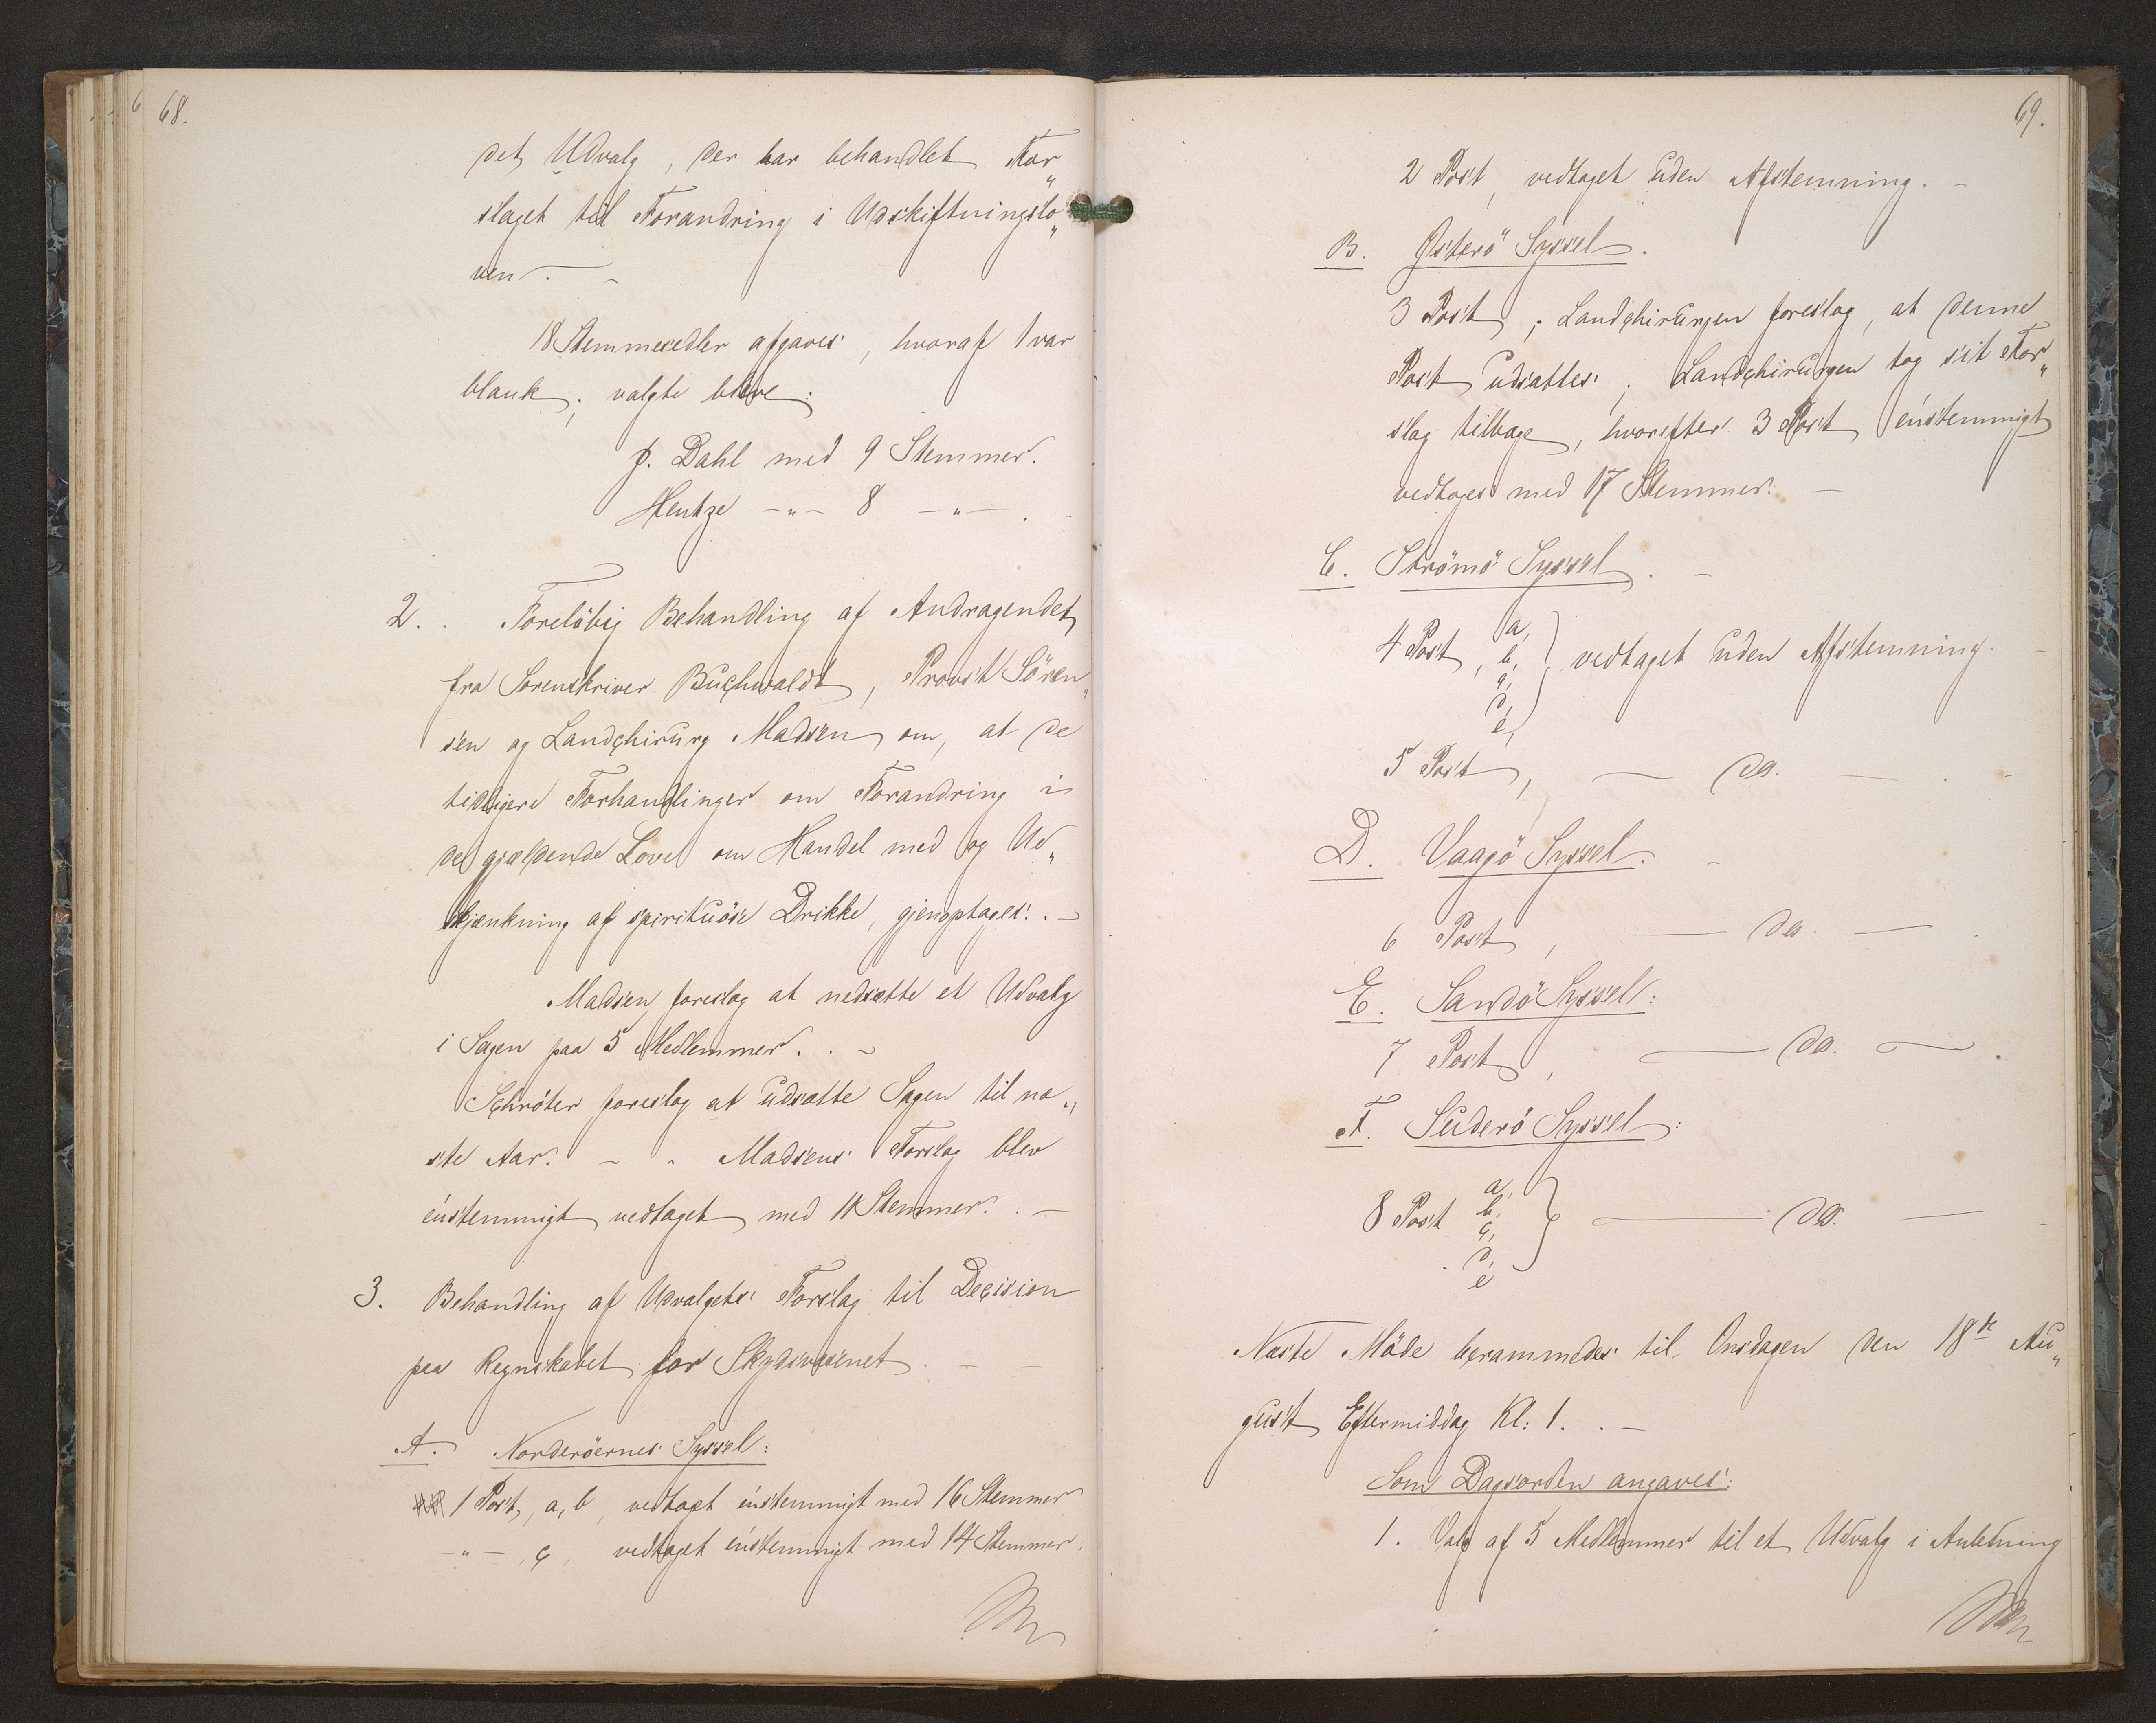 68.
det Udvalg, der har behandlet For„
slaget til Forandring i Udskiftningslo„
ven. –
18 Stemmesedler afgaves, hvoraf 1 var
blank; valgte bleve:
J. Dahl med 9 Stemmer.
Hentze –„– 8 –„–.
2. Foreløbig Behandling af Andragendet
fra Sorenskriver Buchwaldt, Provst Sören„
sen og Landchirurg Madsen om, at de
tidligere Forhandlinger om Forandring i
de gjældende Love om Handel med og Ud„
skjænkning af spirituöse Drikke, gjenoptages. –
Madsen foreslog at nedsætte et Udvalg
i Sagen paa 5 Medlemmer. –
Schröter foreslog at udsætte Sagen til næ„
ste Aar. – Madsens Forslag blev
énstemmigt vedtaget med Stemmer. –
3. Behandling af Udvalgets Forslag til Decision
paa Regnskabet for Skydsvæsenet. – –
A. Norderöernes Syssel:
1 Post, a, b, vedtaget énstemmigt med 16 Stemmer
–„– , c, vedtaget énstemmigt med 14 Stemmer.
69.
2 Post, vedtaget uden Afstemning. –
B. Österö Syssel.
3 Post; Landchirurgen foreslog, at denne
Post udsattes; Landchirurgen tog sit For„
slag tilbage, hvorefter 3 Post énstemmigt
vedtoges med 17 Stemmer. –
C. Strömö Syssel. –
4 Post, a, b, c, d, e, vedtaget uden Afstemning. –
5 Post, — do. — .
D. Vaagö Syssel. –
6 Post, — do. — .
E. Sandö Syssel:
7 Post, — do. — .
F. Suderö Syssel:
8 Post a, b, c, d, e — do. — .
Næste Möde berammedes til Onsdagen den 18de Au„
gust Eftermiddag Kl: 1. –
Som Dagsorden angaves:
1. Valg af 5 Medlemmer til et Udvalg i Anledning